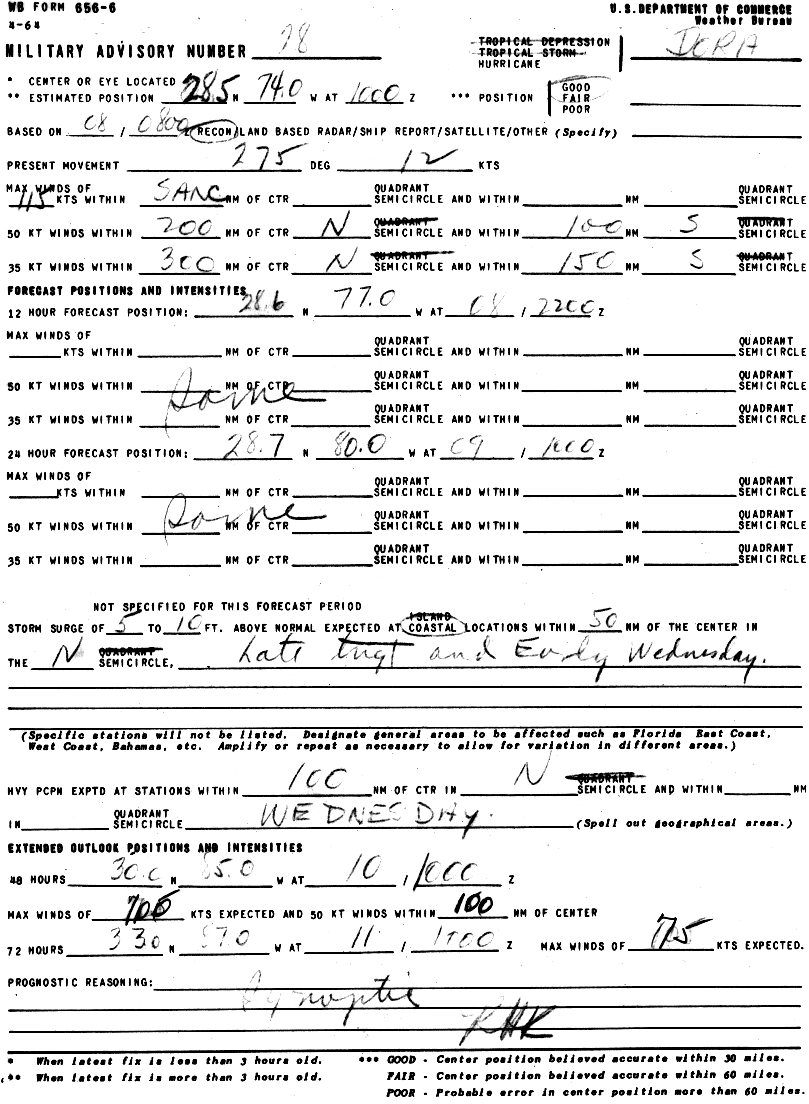 WB FORM 656-6 U.S. DEPARTMENT OF COMMERCE
4-64 Weather Bureau
MILITARY ADVISORY NUMBER 28 TROPICAL DEPRESSION TROPICAL STORM HURRICANE DORA
* CENTER OR EYE LOCATED
** ESTIMATED POSITION 28.5 N 74.0 W AT 1000 Z *** POSITION GOOD FAIR POOR
BASED ON 08 / 0800 RECON/LAND BASED RADAR/SHIP REPORT/SATELLITE/OTHER (Specify)
PRESENT MOVEMENT 275 DEG 12 KTS
MAX WINDS OF QUADRANT QUADRANT
115 KTS WITHIN SANC NM OF CTR SEMICIRCLE AND WITHIN NM SEMICIRCLE
QUADRANT QUADRANT
50 KT WINDS WITHIN 200 NM OF CTR N SEMICIRCLE AND WITHIN 100 NM S SEMICIRCLE
QUADRANT QUADRANT
35 KT WINDS WITHIN 300 NM OF CTR N SEMICIRCLE AND WITHIN 150 NM S SEMICIRCLE
FORECAST POSITIONS AND INTENSITIES
12 HOUR FORECAST POSITION: 28.6 N 77.0 W AT 08 / 2200 Z
MAX WINDS OF QUADRANT QUADRANT
KTS WITHIN NM OF CTR SEMICIRCLE AND WITHIN NM SEMICIRCLE
QUADRANT QUADRANT
50 KT WINDS WITHIN Same NM OF CTR SEMICIRCLE AND WITHIN NM SEMICIRCLE
QUADRANT QUADRANT
35 KT WINDS WITHIN NM OF CTR SEMICIRCLE AND WITHIN NM SEMICIRCLE
24 HOUR FORECAST POSITION: 28.7 N 80.0 W AT 09 / 1000 Z
MAX WINDS OF QUADRANT QUADRANT
KTS WITHIN NM OF CTR SEMICIRCLE AND WITHIN NM SEMICIRCLE
QUADRANT QUADRANT
50 KT WINDS WITHIN Same NM OF CTR SEMICIRCLE AND WITHIN NM SEMICIRCLE
QUADRANT QUADRANT
35 KT WINDS WITHIN NM OF CTR SEMICIRCLE AND WITHIN NM SEMICIRCLE
NOT SPECIFIED FOR THIS FORECAST PERIOD
ISLAND
STORM SURGE OF 5 TO 10 FT. ABOVE NORMAL EXPECTED AT COASTAL LOCATIONS WITHIN 50 NM OF THE CENTER IN
QUADRANT
THE N SEMICIRCLE, Late tngt and Early Wednesday.
(Specific stations will not be listed. Designate general areas to be affected such as Florida East Coast,
West Coast, Bahamas, etc. Amplify or repeat as necessary to allow for variation in different areas.)
QUADRANT
HVY PCPN EXPTD AT STATIONS WITHIN 100 NM OF CTR IN N SEMICIRCLE AND WITHIN NM
QUADRANT
IN SEMICIRCLE WEDNESDAY. (Spell out geographical areas.)
EXTENDED OUTLOOK POSITIONS AND INTENSITIES
48 HOURS 30.0 N 85.0 W AT 10 / 1000 Z
MAX WINDS OF KTS EXPECTED AND 50 KT WINDS WITHIN 100 NM OF CENTER
72 HOURS 33.0 N 87.0 W AT 11 / 1000 Z MAX WINDS OF 75 KTS EXPECTED.
PROGNOSTIC REASONING: Synoptic
RHK
* When latest fix is less than 3 hours old. *** GOOD - Center position believed accurate within 30 miles.
** When latest fix is more than 3 hours old. FAIR - Center position believed accurate within 60 miles.
POOR - Probable error in center position more than 60 miles.